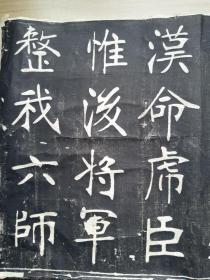 漢命虎臣
惟後将軍
整我六師